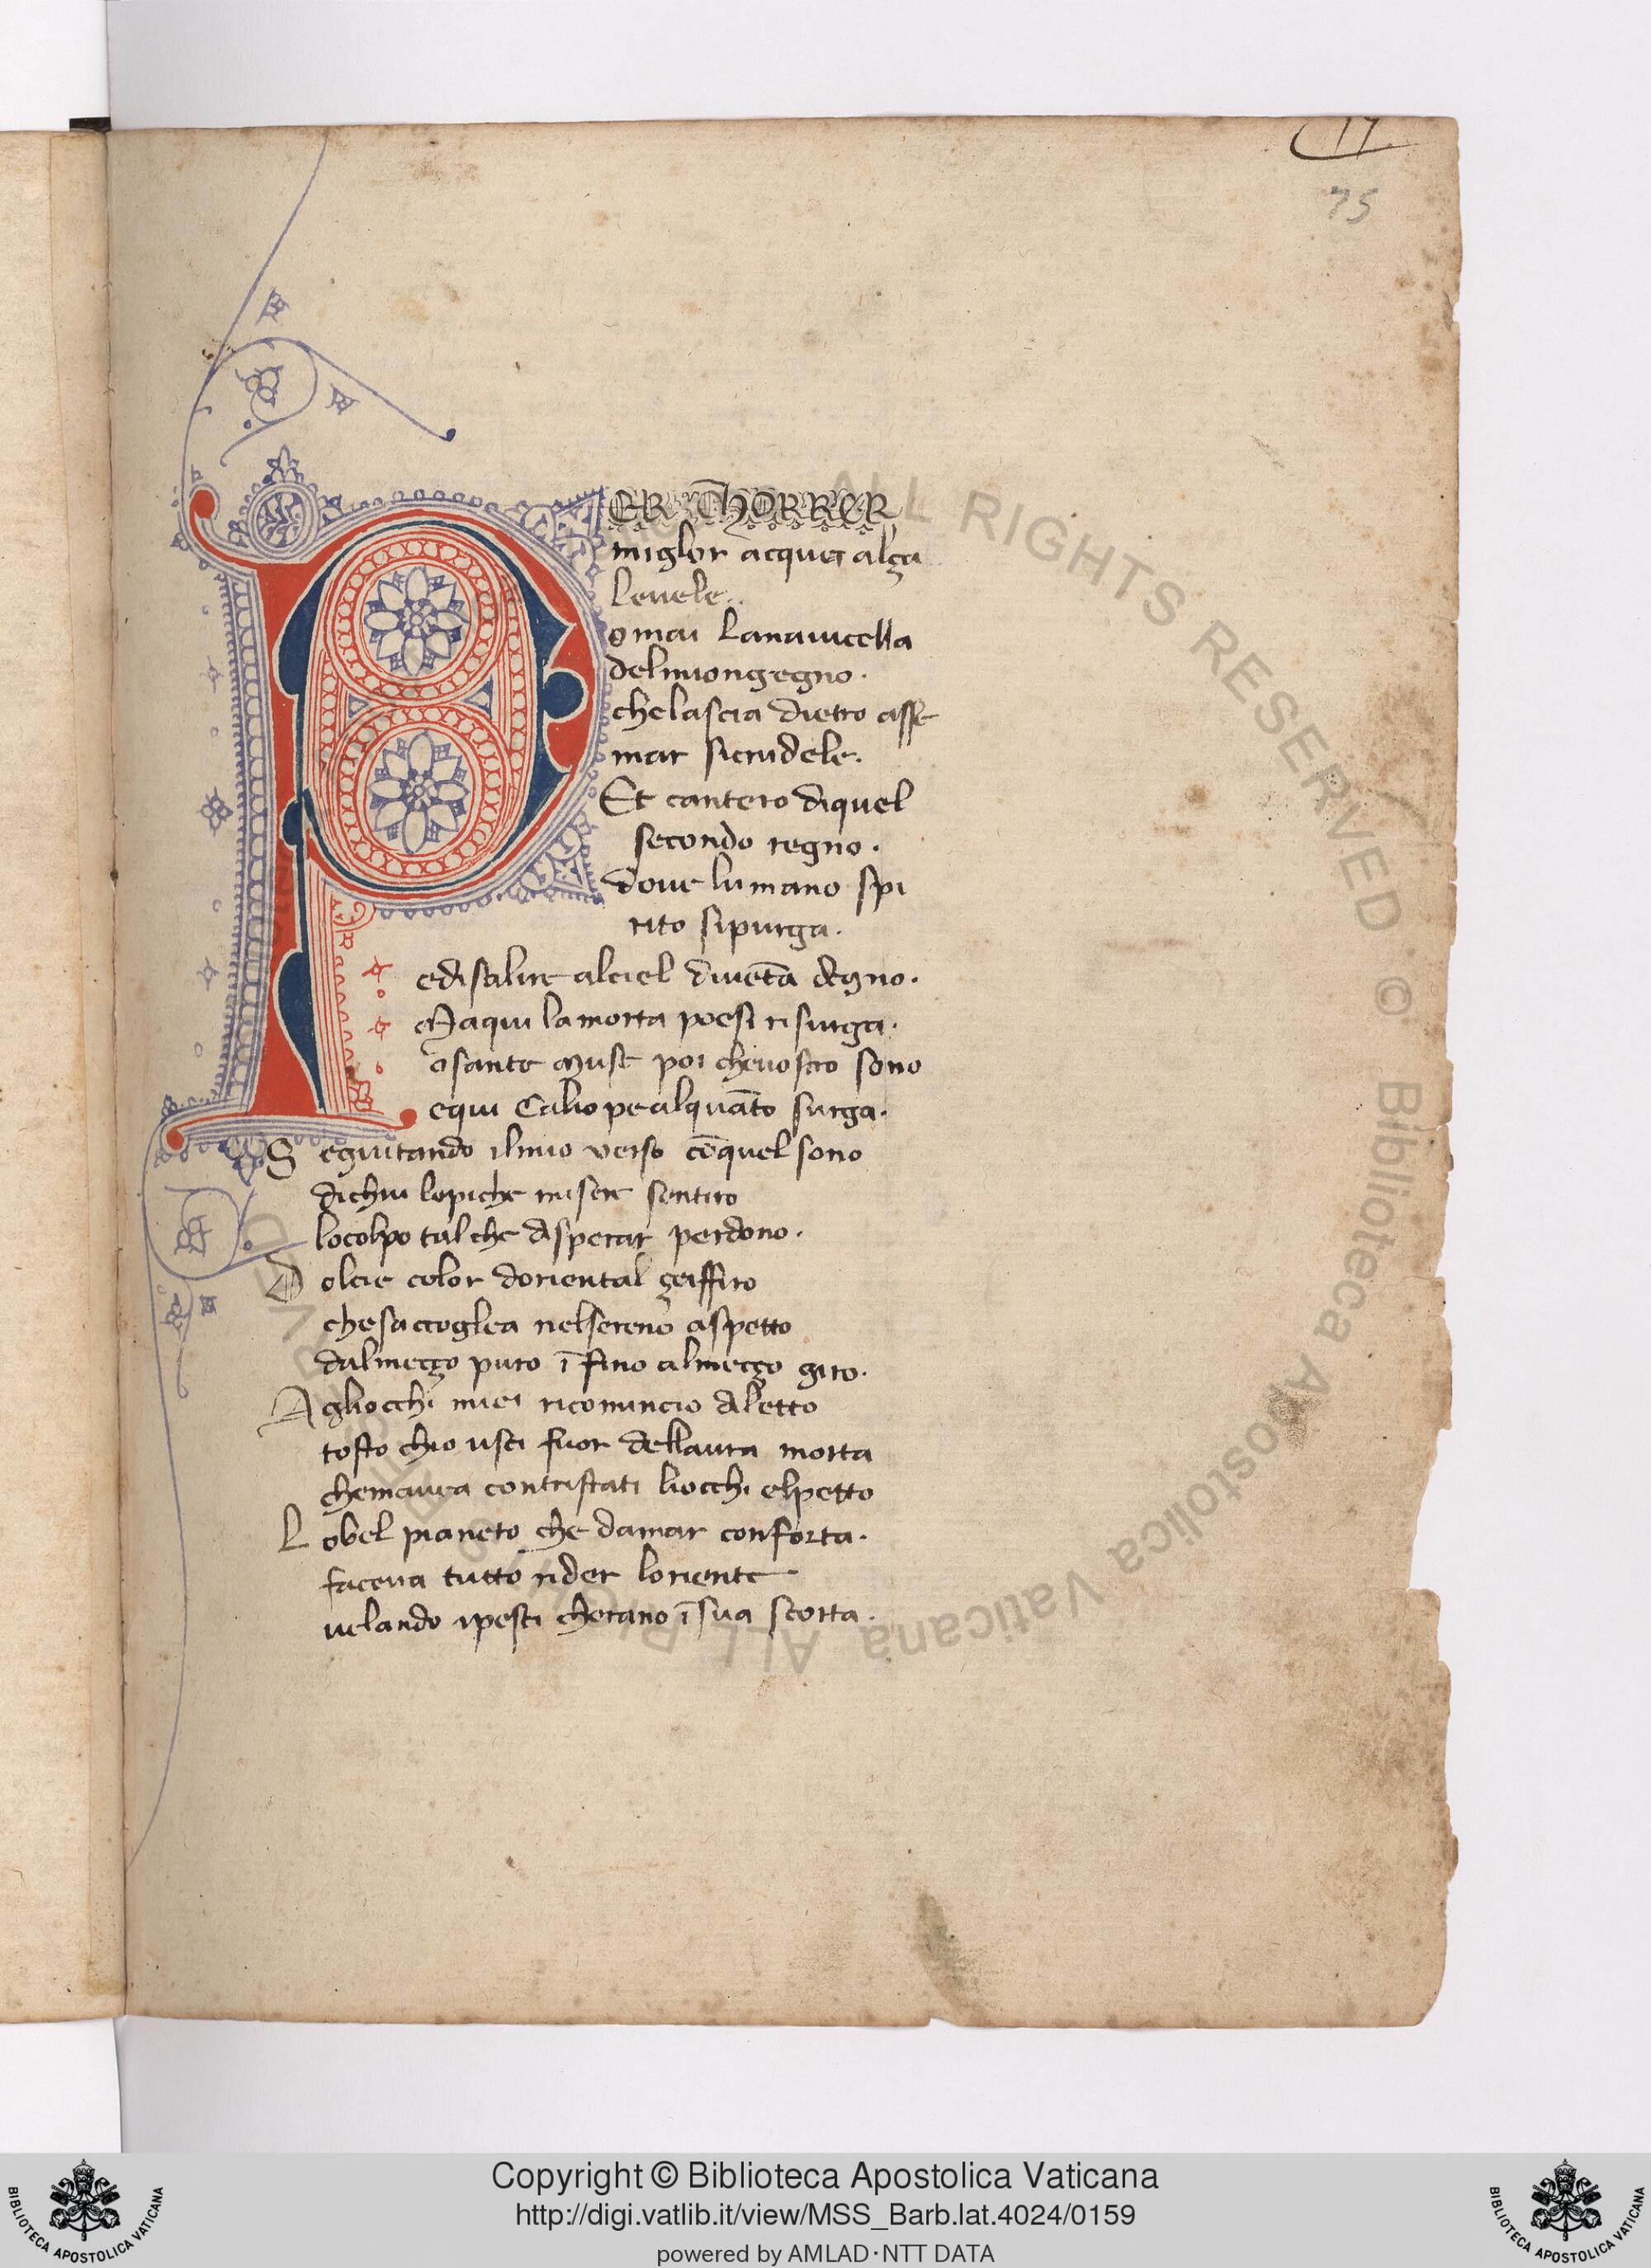 17
75
PER CHORRER
miglor acque alça
leuele.
omai lanauicella
delmiongegno.
chelascia dietro asse
mar sicrudele.
Et cantero diquel
secondo regno.
doue lumano spi
rito sipurga.
edisalire alciel diuēta degno.
Maqui lamorta poesi risurga.
osante Muse poi cheuostro sono
equi Caliopealquāto surga.
Seguitando ilmio verso cōquel sono
dichui lepiche misere sentiro
locolpo talche disperar perdono.
Dolcie color doriental çaffiro
chesaccoglea nelsereno aspetto
dalmeçço puro īfino almeçço giro.
Agliocchi miei ricomincio diletto
tosto chio usci fuor dellaura morta
chemauea contristati liocchi elpetto
Lobel pianeto che damar conforta.
faceua tutto rider loriente
uelando ipesci cherano īsua scorta.
ALL RIGHTS RESERVED © Biblioteca Apostolica Vaticana
Copyright © Biblioteca Apostolica Vaticana
http://digi.vatlib.it/view/MSS_Barb.lat.4024/0159
powered by AMLAD·NTT DATA
BIBLIOTECA APOSTOLICA VATICANA
BIBLIOTECA APOSTOLICA VATICANA